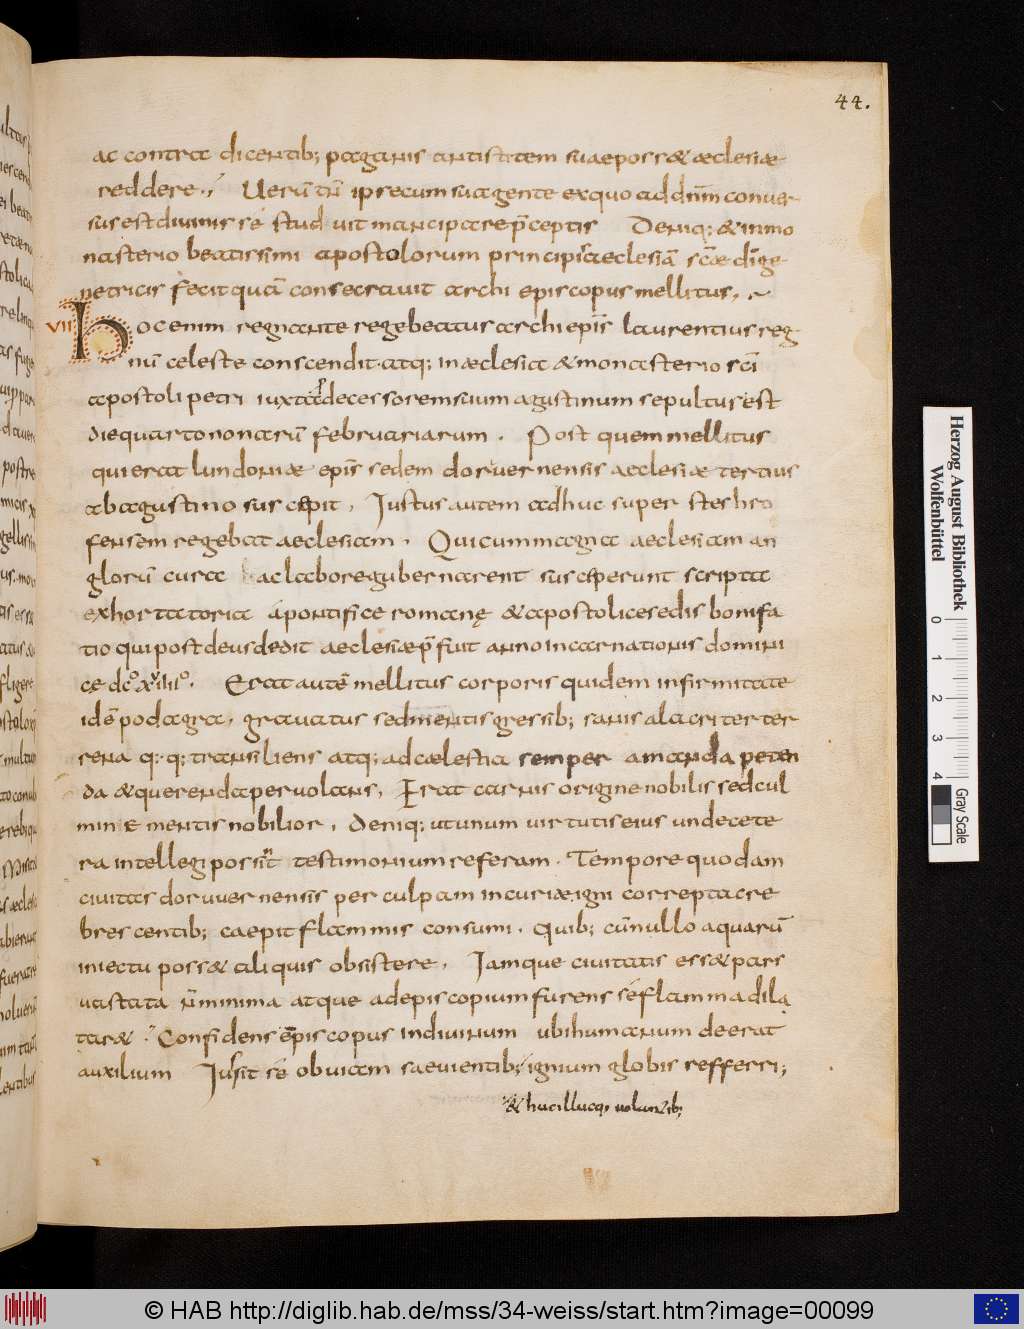 44.
ac contra dicentib; paganis antistitem suae poss& æclesiæ
reddere. Uerū tn̄ ipse cum sua gente exquo ad dn̄m conuer
sus est diuinis se stud uit mancipare p̄ceptis Deniq; & in mo
nasterio beatissimi apostolorum principis aeclesiā sc̄æ dī ge
netricis fecit quā consecrauit archi episcopus mellitus.
VII Hoc enim regnante rege beatus archi epīs laurentius reg
nū celeste conscendit. atq; in æclesia & monasterio sc̄i
apostoli petri iuxta p̄decessorem suum agustinum sepultur est
die quarto nonarū februariarum. Post quem mellitus
qui erat lundoniæ epīs sedem doruernensis aeclesiæ tertius
ab agustino suscepit, Iustus autem adhuc superstes hro
fensem regebat aeclesiam. Qui cum magna aeclesiam an
glorū cura ac labore gubernarent susceperunt scripta
exhortatoria a pontifice romanę & apostolice sedis bonifa
tio qui post deusdedit aeclesiæ p̄fuit anno incarnationis domini
ce dc̊ xviiii̊. Erat autē mellitus corporis quidem infirmitate
idē podagra, grauatus sed mentis gressib; sanis alacriter ter
rena q; q; transiliens atq; ad cælestia semper amanda peten
da & querenda peruolans, Erat carnis origine nobilis sed cul
mine mentis nobilior, deniq; ut unum uirtutis eius unde cete
ra intellegi possint testimonium referam. Tempore quodam
ciuitas doruuernensis per culpam incuriæ igni correpta cre
brescentib; caepit flammis consumi. Quib; cū nullo aquarū
iniectu poss& aliquis obsistere, Iamque ciuitatis ess& pars
uastata n̄ minima atque ad episcopium furens se flamma dila
tar& . Confidens episcopus in diuinum ubi humanum deerat
auxilium Iussit se obuiam saeuientib; ignium globis refferri;
& huc illucq; uolantib;
Herzog August Bibliothek
Wolfenbüttel
0 1 2 3 4
Gray Scale
© HAB http://diglib.hab.de/mss/34-weiss/start.htm?image=00099